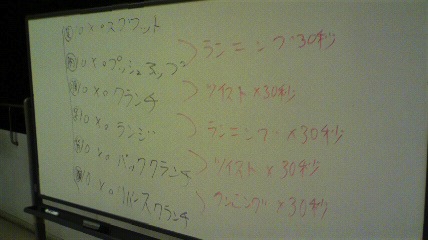 10×0スクワット
ランニング 30秒
10×0プッシュアップ
ツイスト×30秒
10×0クランチ
ランニング×30秒
10×0ランジ
ツイスト×30秒
10×0バッククランチ
ランニング×30秒
10×0リバースクランチ